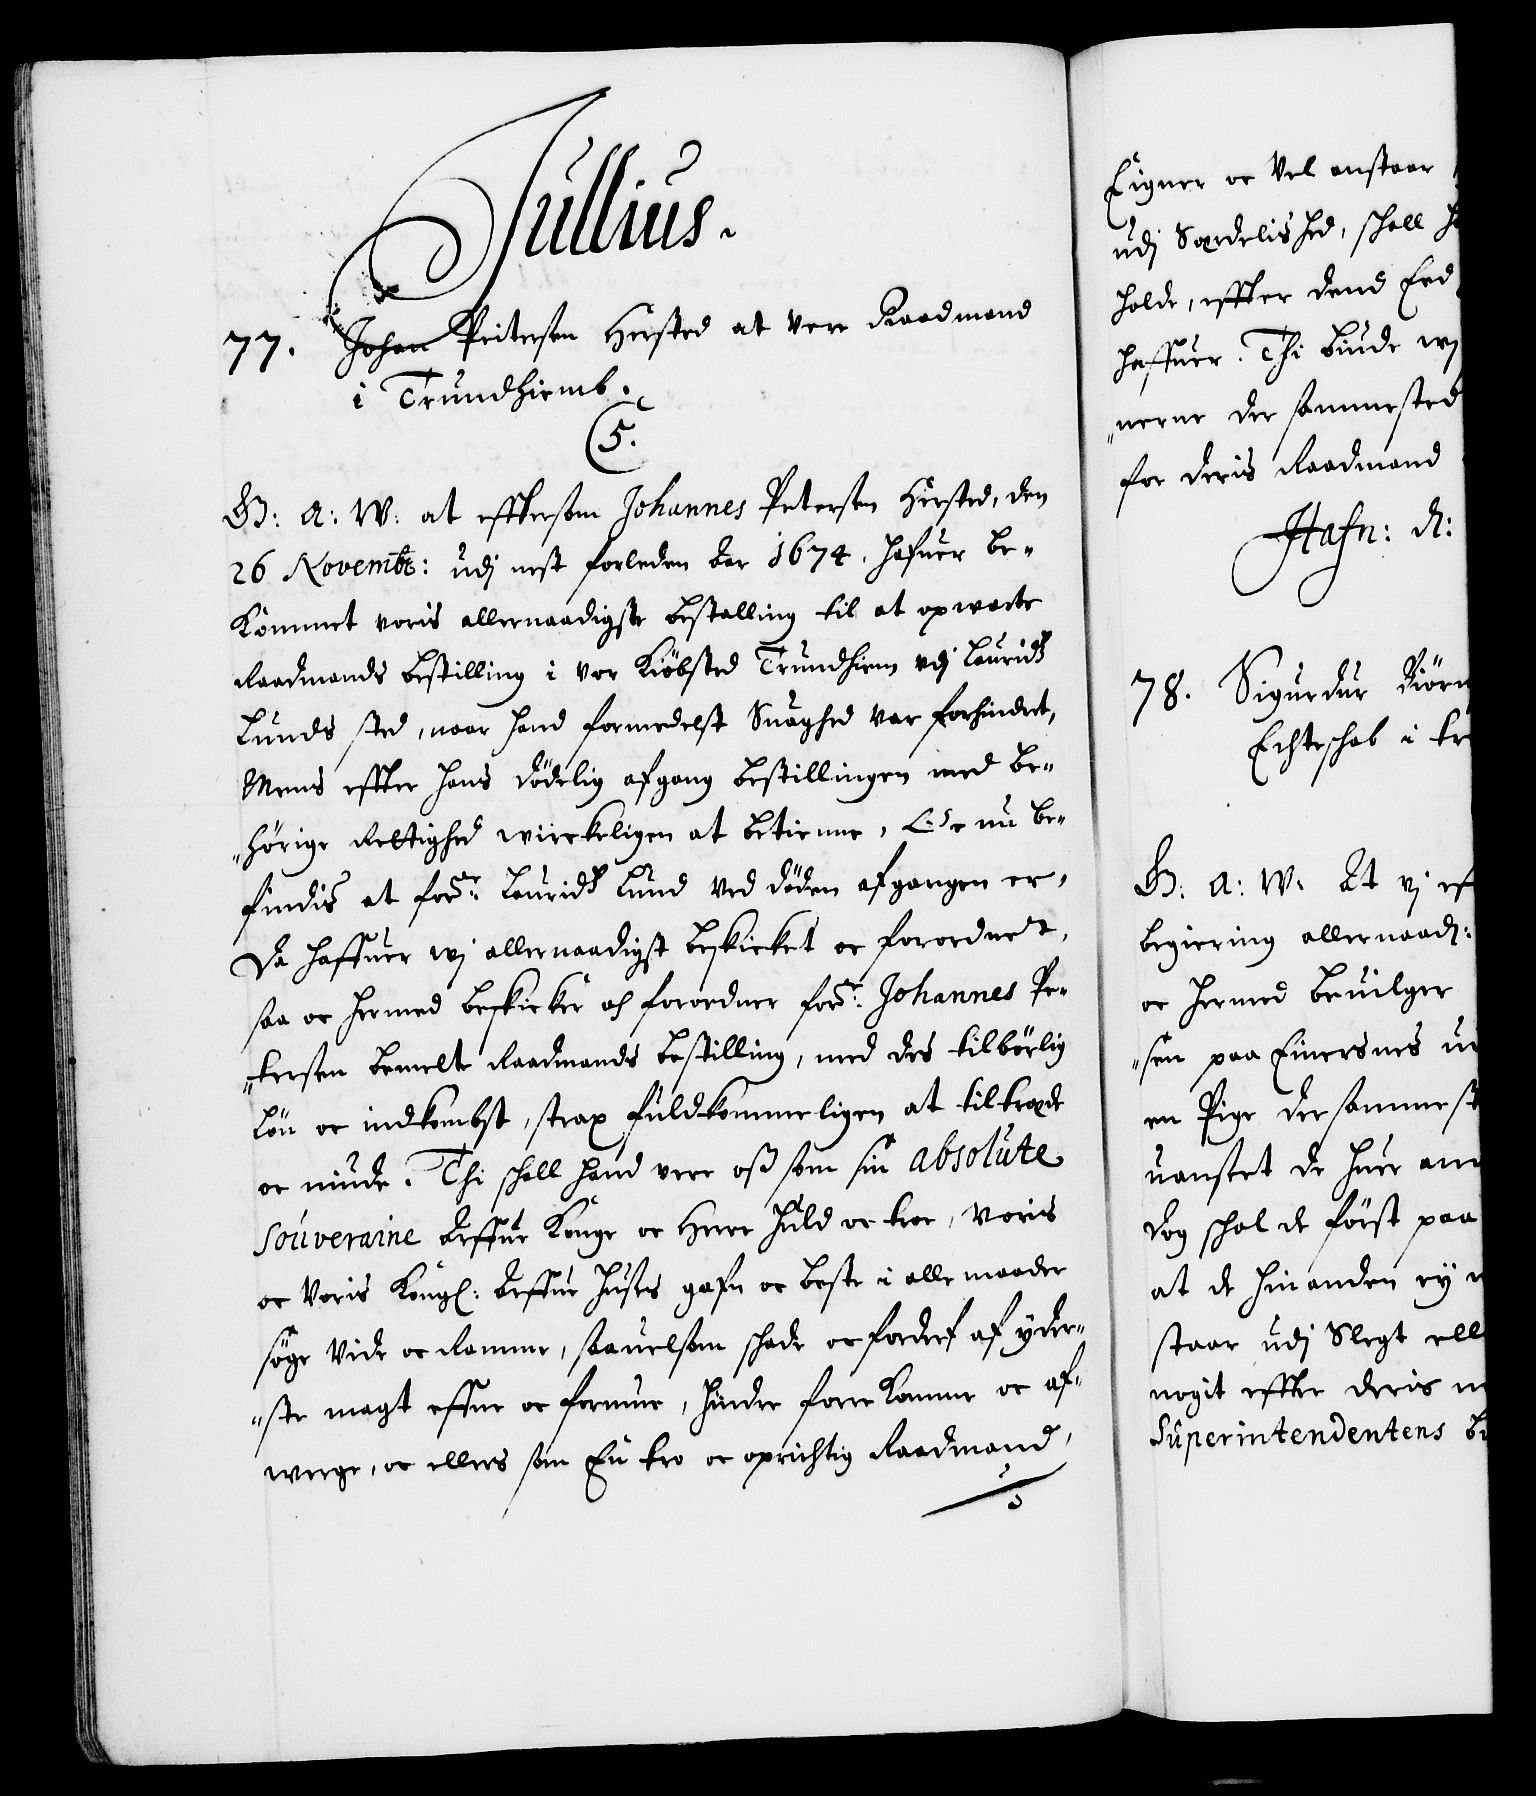 Jullius.
77. Johan Peitersen Hersted at vere Raadmand
i Trundhiemb.
5.
G: A: W: at effttersom Johannes Petersen Hersted, den
26 Novembr: udj nest forleden aar 1674. hafuer be-
kommet voris allernaadigste bestalling til at opwarte
Raadmands bestilling i vor Kiöbsted Trundhiem vdj Lauridtz
Lunds sted, naar hand formedelst Suaghed var forhindret,
Mens effter hans dödelig afgang bestillingen med be-
"hörige Rettighed wirckeligen at betienne, Oc nu be-
findis at forne: Lauridtz Lund ved döden afgangen er,
Da haffuer wj allernaadigst beskicket oc forordnet,
saa oc hermed beskicker och forordner forne: Johannes Pe-
"tersen bemelte Raadmands bestilling, med des tilbörlig
Lön oc indkombst, strax fuldkommeligen at tiltræde
oc niude. Thi schall hand vere oss som sin absolute
souveraine Arffue Konge oc Herre huld oc troe, Voris
oc Voris Kongl: Arffue Huses gafn oc beste i alle maader
söge vide oc Ramme, saauelsom schade oc forderf af yder-
"ste magt effne oc formue, hindre forre komme oc af-
werge, oc ellers som En tro oc oprichtig Raadmand,
Eigner oc Vel anstaar
udj Særdelished, schall h
holde, effter dend Eed
haffuer. Thi biude wj
"nerne der sammested
for deris Raadmand
Hafn: d:
78. Sigurdur Biörn
Echteschab i tr
G: A: W: At vj ef
begiering allernaadj:
oc hermed beuilger
"sen paa Einersnes ud
en Pige der sammest
uanseet de huer an
dog schal de först paa
at de hinanden ey
staar udj Slegt ell
nogit effter deris
Superintendentens be